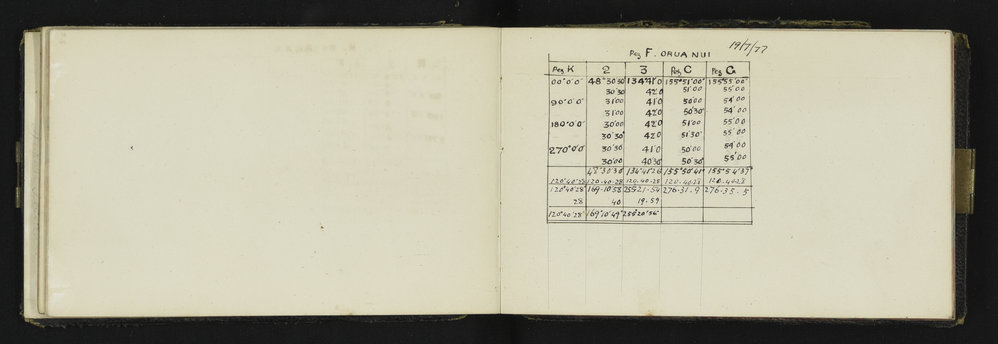 19/7/77
Peg F. ORUA NUI
Peg K 2 3 Peg C Peg G
00°0'0" 48°30'30" 134°41'0 155°51'00" 155°55'00"
30'30 42'0 51'00 55'00
90°0'0" 31'00 41'0 50'00 54'00
31'00 42'0 50'30" 54'00
180°0'0" 30'00 42'0 51'00 55'00
30'30" 42'0 51'30" 55'00
270°0'0' 30'30 41'0 50'00 54'00
30'00 40'30" 50'30" 55'00
48°30'30" 134°41'26 155°50'41" 155°54'37"
120°40'28 120.40.28 120.40.28 120.40.28 120.40.28
120°40'28" 169.10.58 255.21.54 276.31.9 276.35.5
28 40 19.59
120°40'28" 169°10'49" 255°20'56"